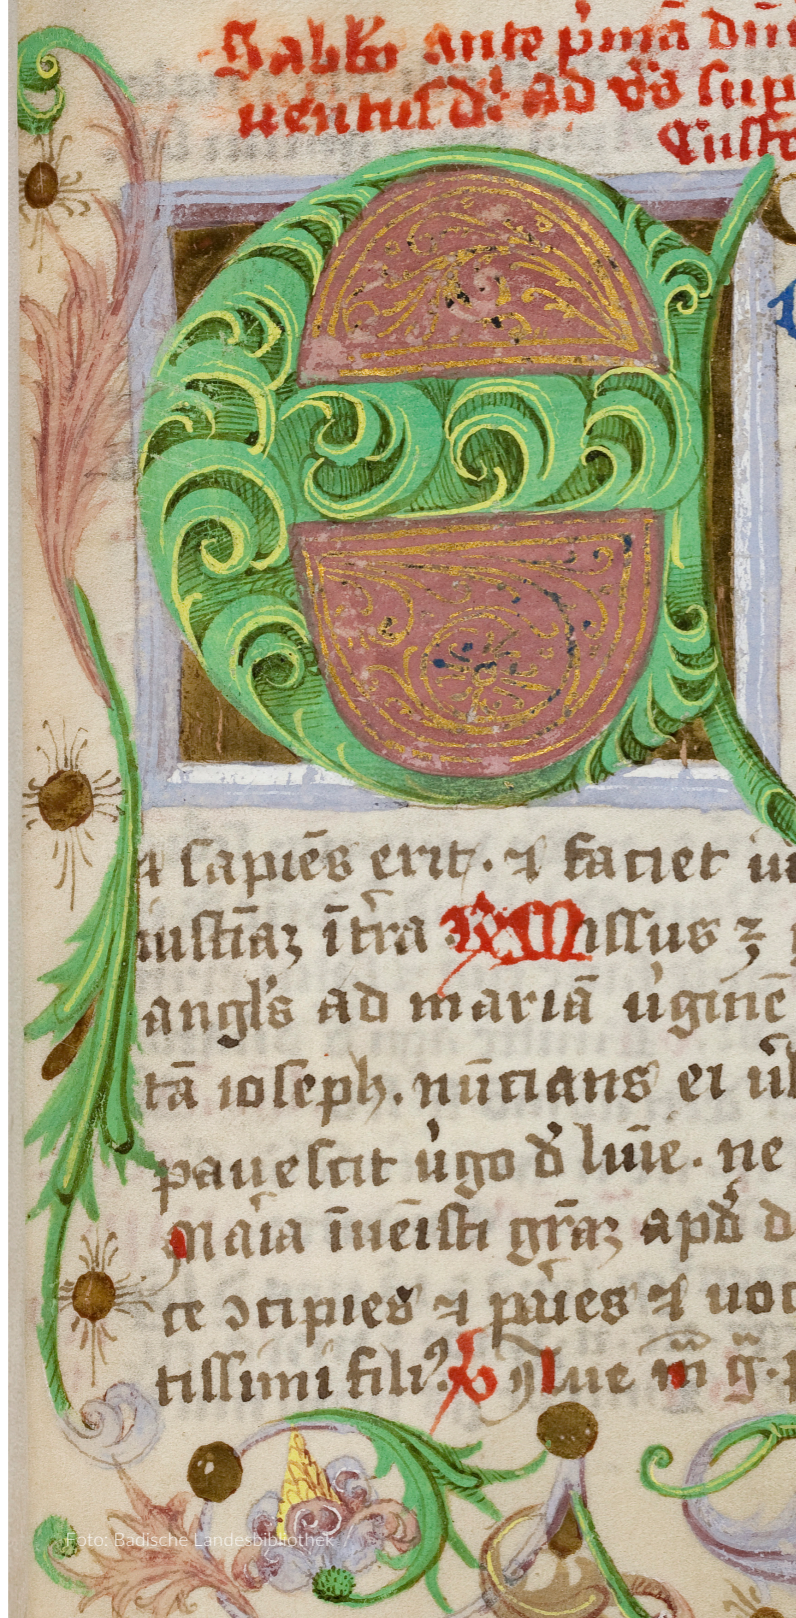 Sabbo ante pͥmā dūi
uentus dī Ad vͦs sup
E
⁊ sapiēs erit. ⁊ faciet iu
iustīaꝫ ī tͬra ℟ Missus ꝫ
angl̄s ad mariā vͥginē
tā ioseph. nūcians ei v̄b
pauescit vͥgo d̄ lūīe. ne
Maͥa īuēisti grāꝫ apd̄ d
ce ↄcipies ⁊ paͥes ⁊ uoc
tissimi filiꝰ. ℣ Aue
Foto: Badische Landesbibliothek